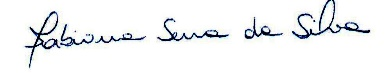 Fabiana Serra da Silva